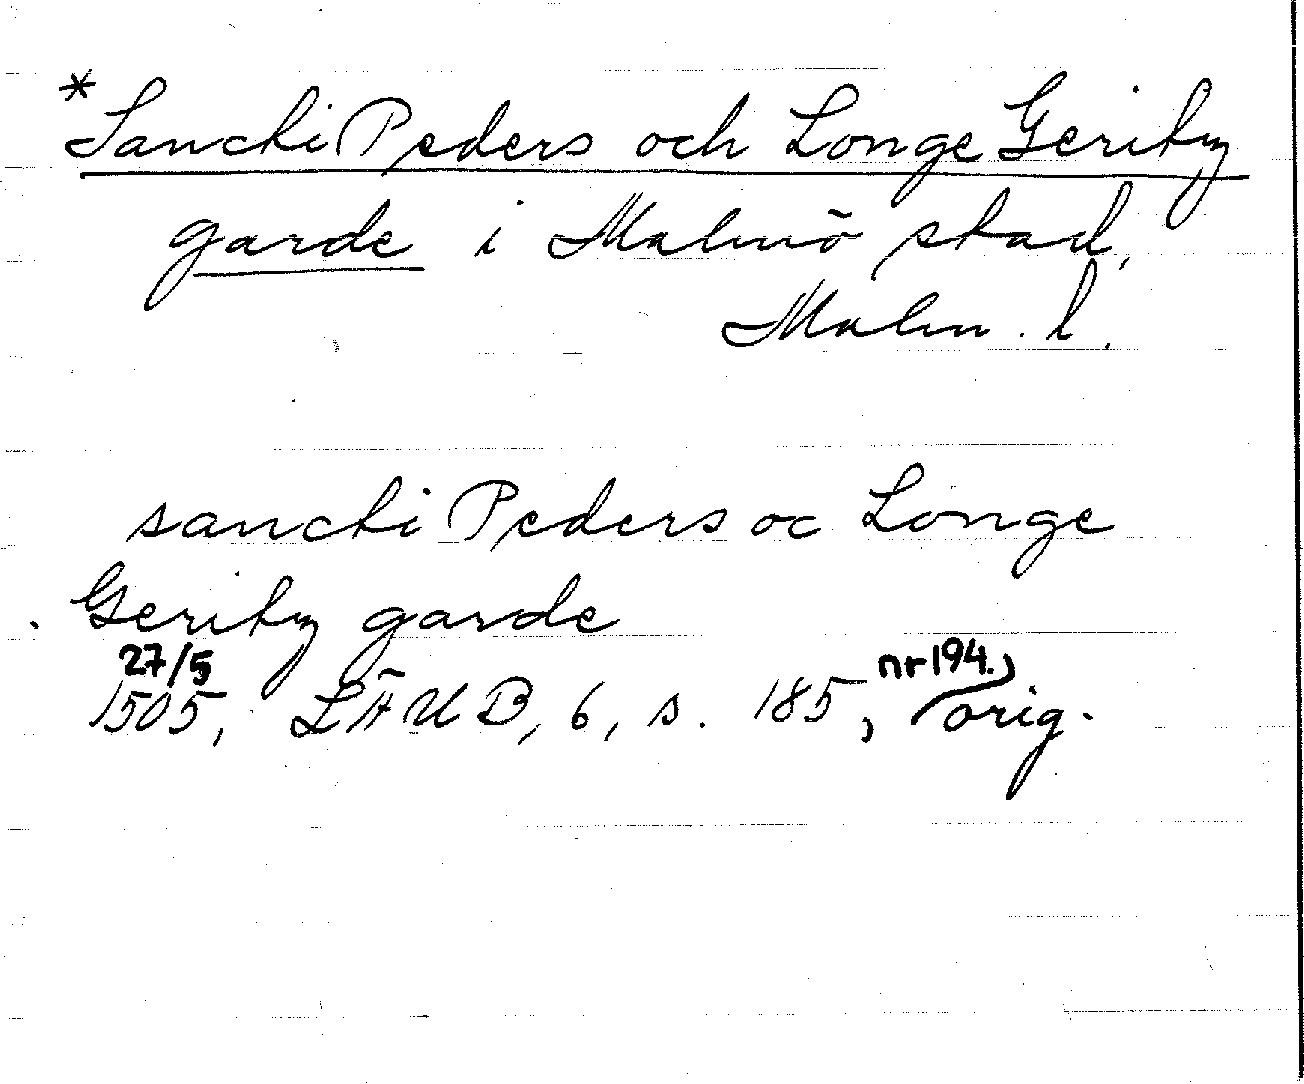 *Sancti Peders och Longe Geritz
garde i Malmö stad,
Malm. l.
sancti Peders oc Longe
Geritz garde
27/5 nr 194.,
1505, LÄUB, 6, s. 185, orig.